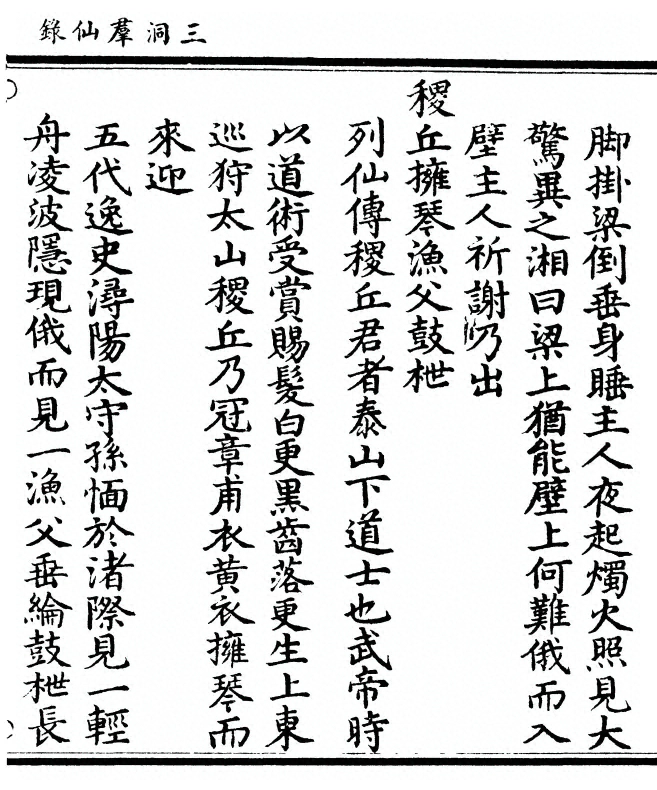 三洞羣仙錄
脚掛梁倒垂身睡主人夜起燭火照見大
驚異之湘曰梁上猶能壁上何難俄而入
壁主人祈謝乃出
稷丘擁琴漁父鼓枻
列仙傳稷丘君者泰山下道士也武帝時
以道術受賞賜髮白更黑齒落更生上東
巡狩太山稷丘乃冠章甫衣黄衣擁琴而
來迎
五代逸史潯陽太守孫愐於渚際見一輕
舟凌波隱現俄而見一漁父垂綸鼓枻長